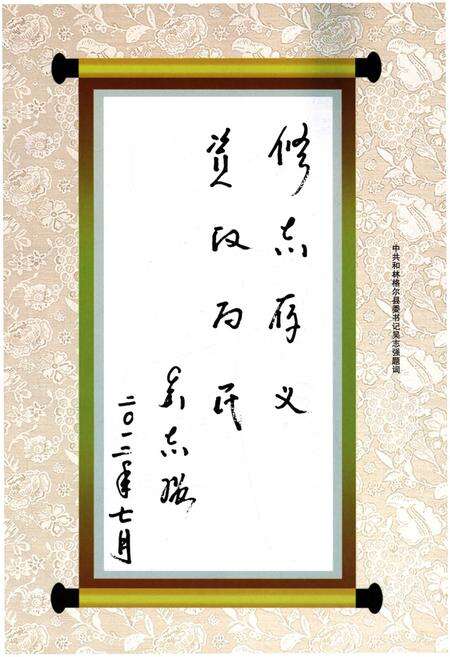 中共和林格尔县委书记吴志强题词
修志存义
资政为民
吴志强
二〇一二年七月